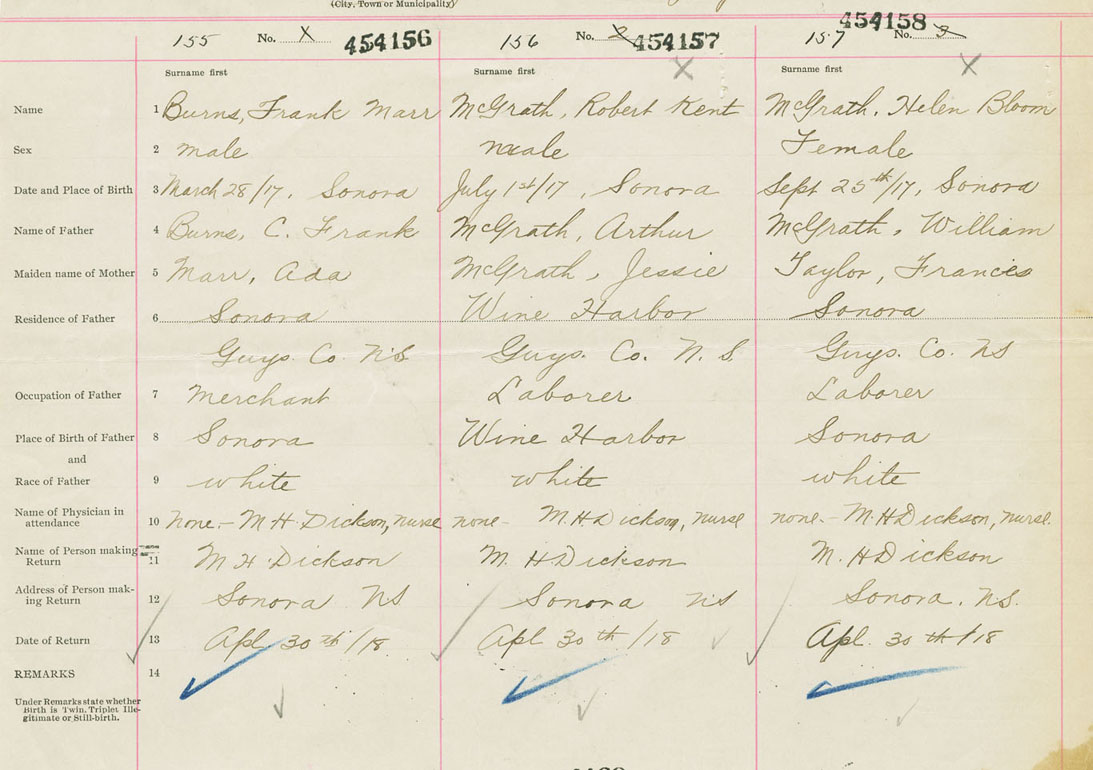 (City, Town or Municipality)
155 No. X 454156 156 No. 2 454157 157 No. 3 454158
Surname first Surname first Surname first
Name 1 Burns, Frank Marr McGrath, Robert Kent McGrath, Helen Bloom
Sex 2 male male Female
Date and Place of Birth 3 March 28/17, Sonora July 1st/17, Sonora Sept 25th/17, Sonora
Name of Father 4 Burns, C. Frank McGrath, Arthur McGrath, William
Maiden name of Mother 5 Marr, Ada McGrath, Jessie Taylor, Frances
Residence of Father 6 Sonora Wine Harbor Sonora
Guys. Co. N.S Guys. Co. N.S. Guys. Co. NS
Occupation of Father 7 Merchant Laborer Laborer
Place of Birth of Father 8 Sonora Wine Harbor Sonora
and
Race of Father 9 white white white
Name of Physician in
attendance 10 none - M H Dickson, nurse none - M.H Dickson, nurse none - M.H Dickson, nurse.
Name of Person making
Return 11 M H Dickson M. H Dickson M. H Dickson
Address of Person mak-
ing Return 12 Sonora NS Sonora NS Sonora. NS.
Date of Return 13 Apl 30th/18 Apl 30th/18 Apl. 30th/18
REMARKS 14
Under Remarks state whether
Birth is Twin, Triplet Ille-
gitimate or Still-birth.